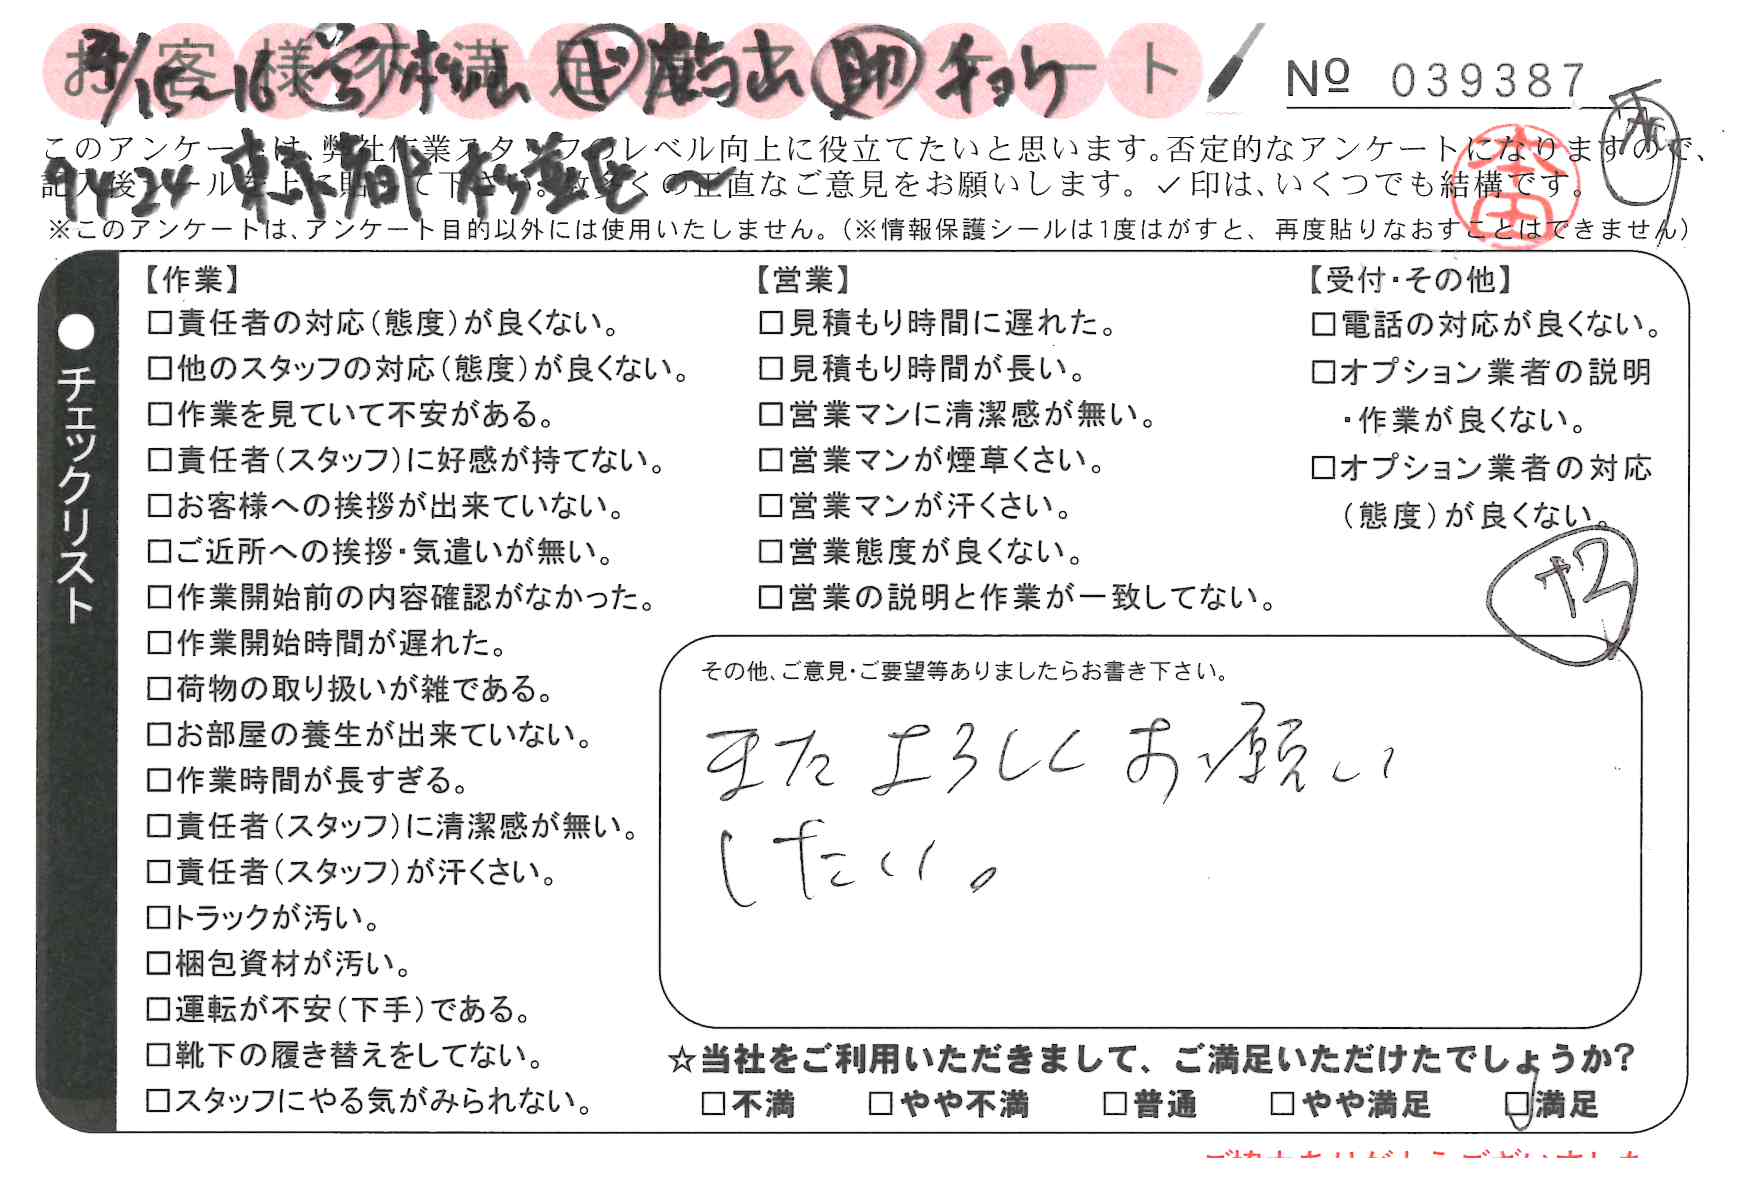 お客様不満足度アンケート
No 039387
このアンケートは、弊社作業スタッフのレベル向上に役立てたいと思います。否定的なアンケートになりますので、
記入後シールを上に貼って下さい。数多くの正直なご意見をお願いします。✓印は、いくつでも結構です。
※このアンケートは、アンケート目的以外には使用いたしません。(※情報保護シールは1度はがすと、再度貼りなおすことはできません)
●チェックリスト
【作業】
□責任者の対応(態度)が良くない。
□他のスタッフの対応(態度)が良くない。
□作業を見ていて不安がある。
□責任者(スタッフ)に好感が持てない。
□お客様への挨拶が出来ていない。
□ご近所への挨拶・気遣いが無い。
□作業開始前の内容確認がなかった。
□作業開始時間が遅れた。
□荷物の取り扱いが雑である。
□お部屋の養生が出来ていない。
□作業時間が長すぎる。
□責任者(スタッフ)に清潔感が無い。
□責任者(スタッフ)が汗くさい。
□トラックが汚い。
□梱包資材が汚い。
□運転が不安(下手)である。
□靴下の履き替えをしてない。
□スタッフにやる気がみられない。
【営業】
□見積もり時間に遅れた。
□見積もり時間が長い。
□営業マンに清潔感が無い。
□営業マンが煙草くさい。
□営業マンが汗くさい。
□営業態度が良くない。
□営業の説明と作業が一致してない。
【受付・その他】
□電話の対応が良くない。
□オプション業者の説明
・作業が良くない。
□オプション業者の対応
(態度)が良くない。
その他、ご意見・ご要望等ありましたらお書き下さい。
またよろしくお願い
したい。
☆当社をご利用いただきまして、ご満足いただけたでしょうか?
□不満 □やや不満 □普通 □やや満足 □満足
ご協力ありがとうございました